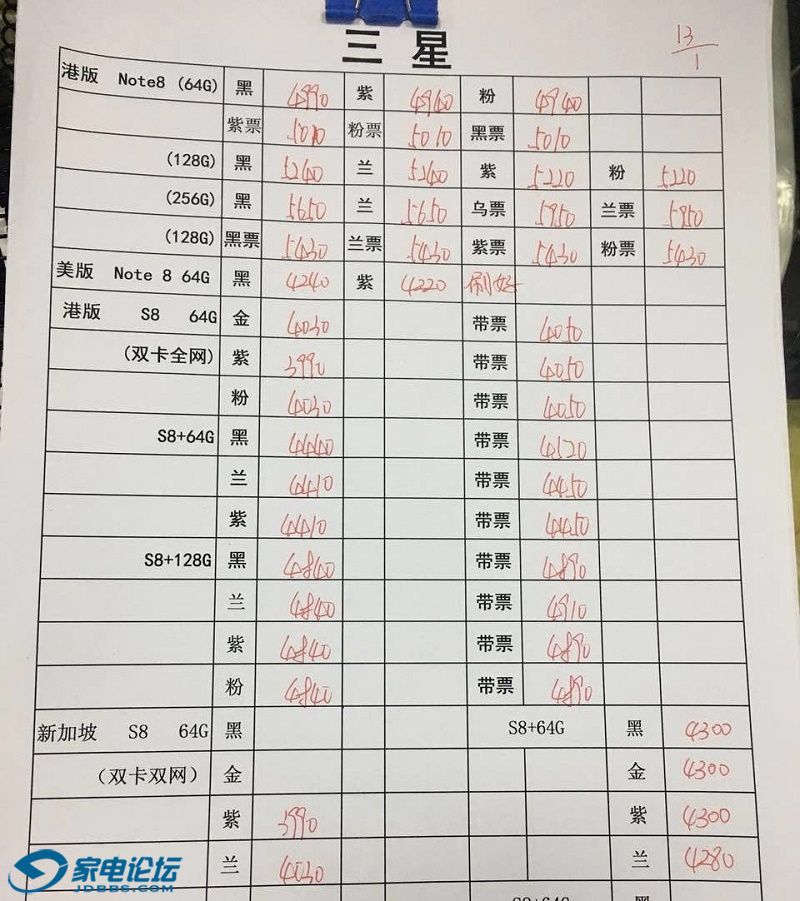 三星
13/1
港版 Note8 (64G) 黑 4990 紫 4940 粉 4940
紫票 5010 粉票 5010 黑票 5010
(128G) 黑 5240 兰 5240 紫 5220 粉 5220
(256G) 黑 5650 兰 5650 乌票 5950 兰票 5950
(128G) 黑票 5430 兰票 5430 紫票 5430 粉票 5430
美版 Note 8 64G 黑 4240 紫 4220 刷好
港版 S8 64G 金 4030 带票 4050
(双卡全网) 紫 3990 带票 4050
粉 4030 带票 4050
S8+64G 黑 4440 带票 4520
兰 4410 带票 4450
紫 4410 带票 4450
S8+128G 黑 4840 带票 4890
兰 4840 带票 4910
紫 4840 带票 4890
粉 4840 带票 4890
新加坡 S8 64G 黑 S8+64G 黑 4300
(双卡双网) 金 金 4300
紫 3990 紫 4300
兰 4030 兰 4280
S8+64G 黑
家电论坛
JDBBS.COM